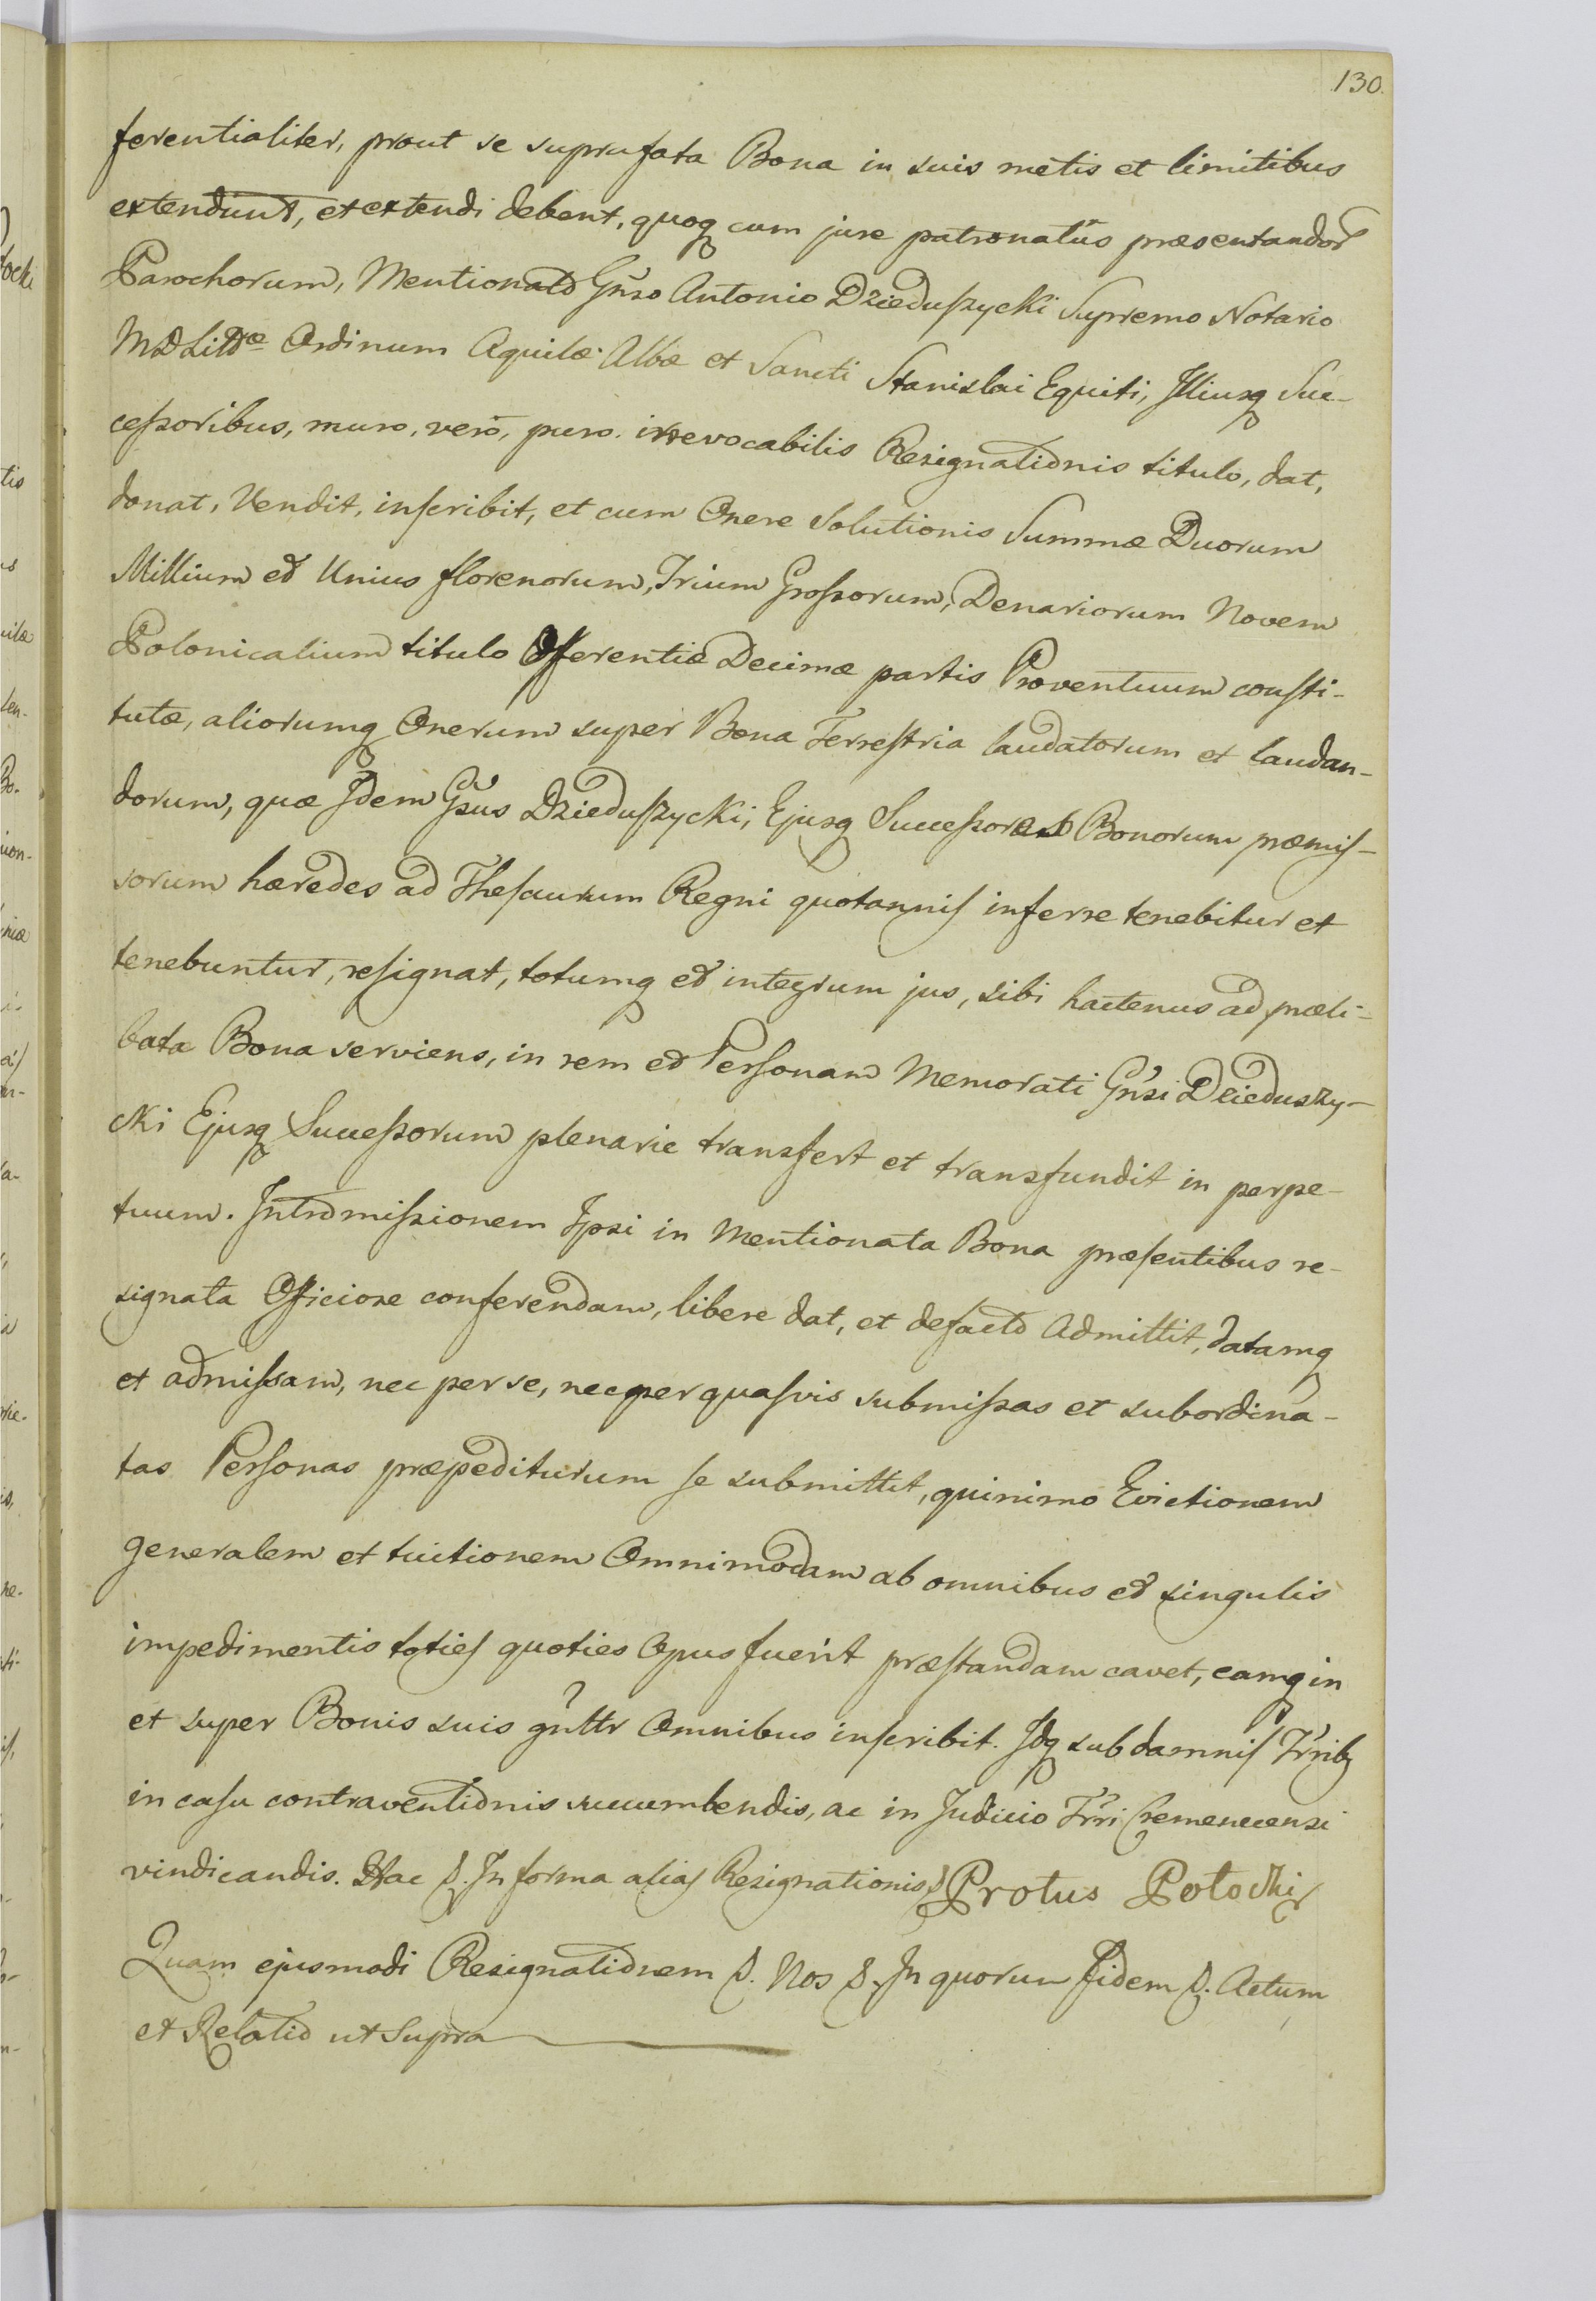 130.
ferentialiter, prout se suprafata Bona in suis metis et limitibus
extendunt, et extendi debent, quoq cum jure patronatûs præsentandor
Parochorum, Mentionato Gnso Antonio Dzieduſzycki Supremo Notario
MDLittæ Ordinum Aquilæ Albæ et Sancti Stanislai Equiti, Illiusq Suc-
ceſsoribus, mero, vero, puro irrevocabilis Resignationis titulo, dat,
donat, Vendit, inſcribit, et cum Onere Solutionis Summæ Duorum
Millium et Unius florenorum, Trium Groſsorum, Denariorum Novem
Polonicalium titulo Offerentiæ Decimæ partis Proventuum conſti-
tutæ, aliorumq Onerum super Bona Terreſtria laudatorum et laudan-
dorum, quæ Idem Gsus Dzieduſzycki, Ejusq Succeſsores Bonorum præmiſ-
sorum hæredes ad Theſaurum Regni quotanniſ inferre tenebitur et
tenebuntur, reſignat, totumq et integrum jus, sibi hactenus ad præli-
bata Bona serviens, in rem et Perſonam Memorati Gnsi Dzieduszy-
cki Ejusq Succeſsorum plenarie transfert et transfundit in perpe-
tuum. Intromiſsionem Ipsi in Mentionata Bona præſentibus re-
signata Officiose conferendam, libere dat, et defacto Admittit, datamq
et admiſsam, nec per se, nec per quaſvis submiſsas et subordina-
tas Perſonas præpediturum ſe submittit, quinimo Evictionem
generalem et tuitionem Omnimodam ab omnibus et singulis
impedimentis totieſ quoties Opus fuerit præſtandam cavet, eamq in
et super Bonis suis gnltr Omnibus inſcribit. Idq sub damniſ Trribq
in caſu contraventionis succumbendis, ac in Judicio Trri Cremenecensi
vindicandis. Hac &. In forma aliaſ Resignationis & Protus Potocki
Quam ejusmodi Resignationem &. Nos &. In quorum Fidem &. Actum
et Relatio ut Supra